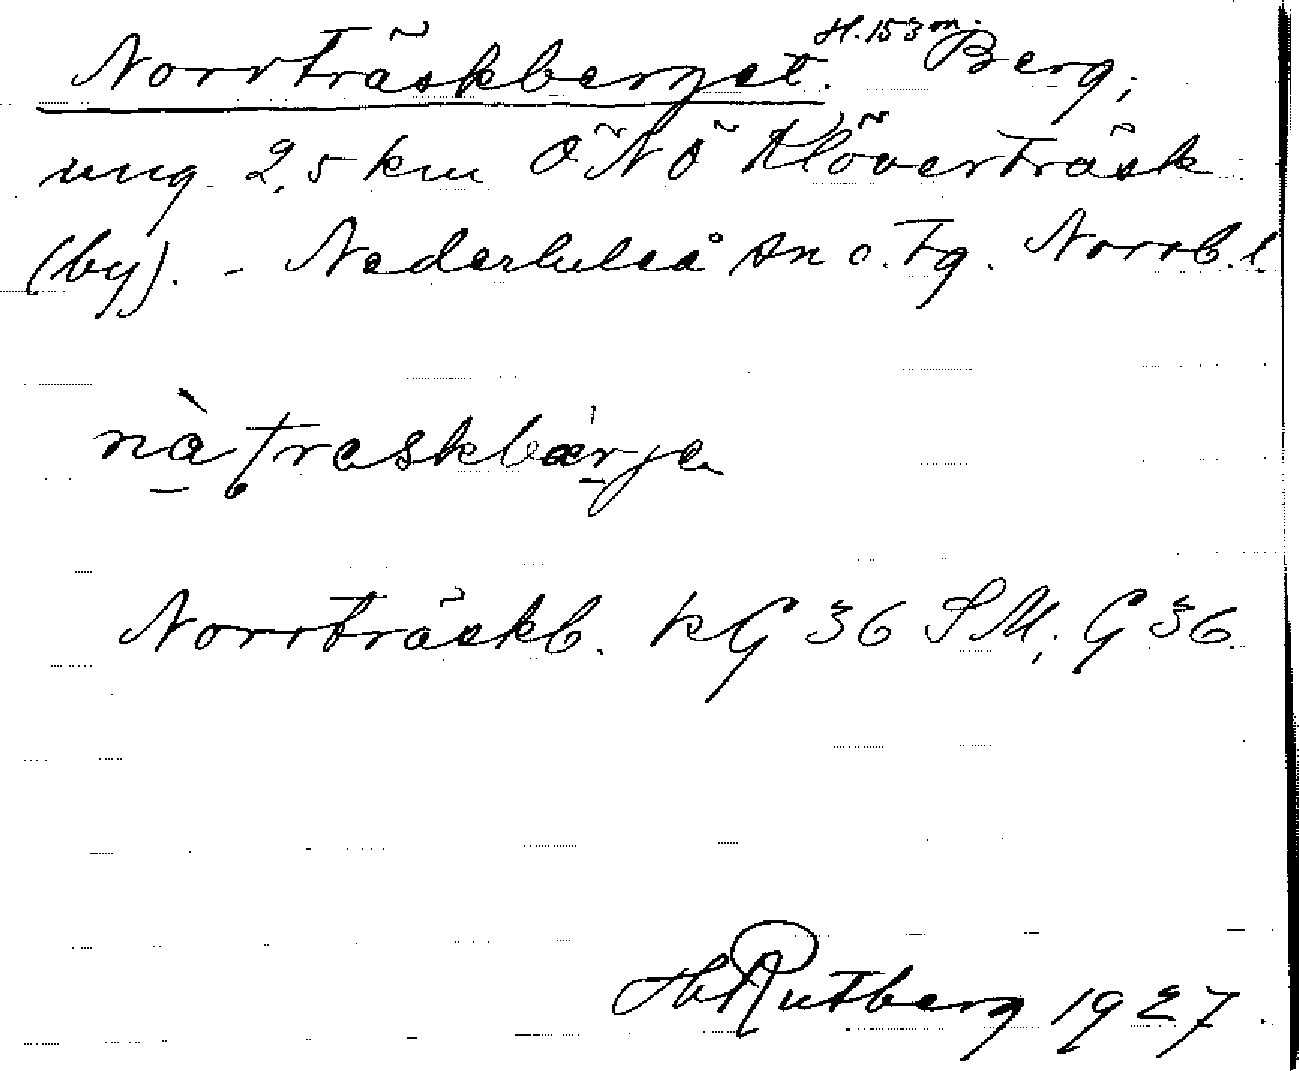 Norrträskberget. H. 153 m. Berg,
ung. 2,5 km ÖNÖ Klöverträsk
(by). - Nederluleå sn o. tg. Norrb. l.
nàtraskbærja
Norrträskb. kG 36 SM; G 36.
H. Rutberg 1927.